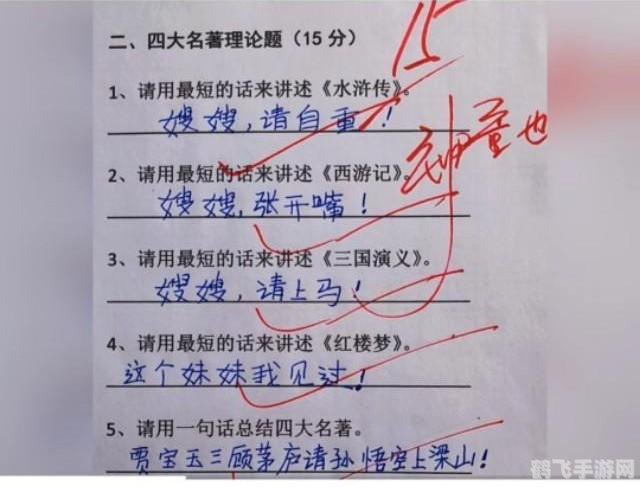 二、四大名著理论题（15分）
15
1、请用最短的话来讲述《水浒传》。
嫂嫂，请自重！
神童也
2、请用最短的话来讲述《西游记》。
嫂嫂，张开嘴！
3、请用最短的话来讲述《三国演义》。
嫂嫂，请上马！
4、请用最短的话来讲述《红楼梦》。
这个妹妹我见过！
5、请用一句话总结四大名著。
贾宝玉三顾茅庐请孙悟空上梁山！
鹤飞手游网